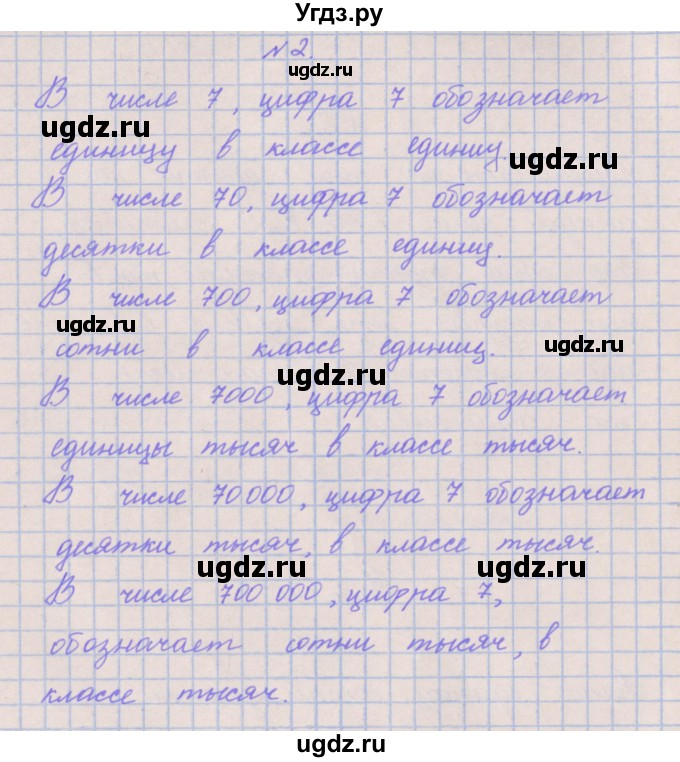 Угдз.ру
N 2.
ugdz.ru
В числе 7, цифра 7 обозначает
ugdz.ru
единицу в классе единиц
ugdz.ru
В числе 70, цифра 7 обозначает
десятки в классе единиц.
В числе 700, цифра 7 обозначает
ugdz.ru
сотни в классе единиц.
ugdz.ru
ugdz.ru
В числе 7000, цифра 7 обозначает
единицы тысяч в классе тысяч.
В числе 70000, цифра 7 обозначает
десятки тысяч, в классе тысяч.
ugdz.ru
ugdz.ru
В числе 700 000, цифра 7,
обозначает сотни тысяч, в
классе тысяч.
ugdz.ru